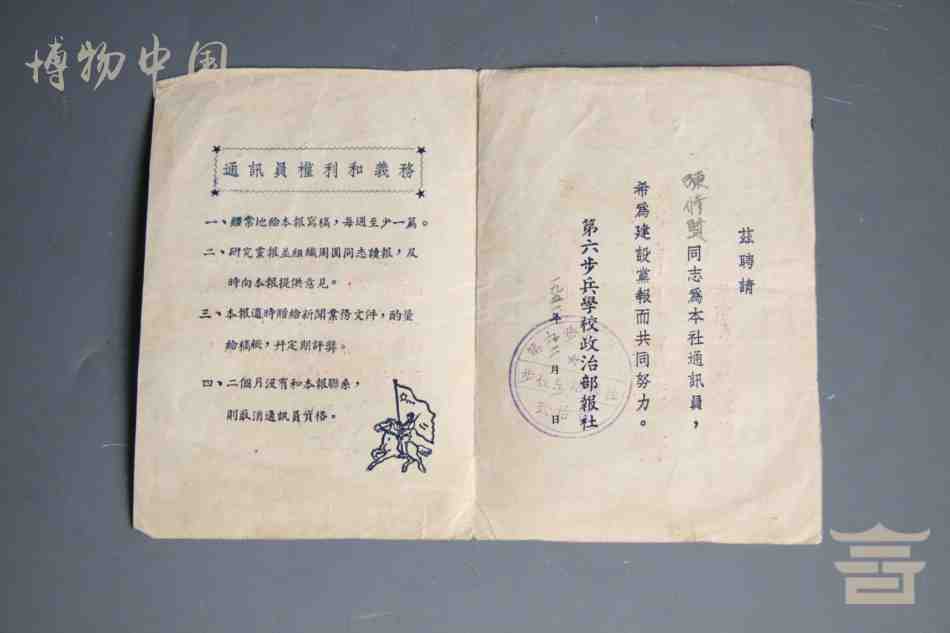 博物中国
通訊員權利和義務
一、經常地給本報寫稿，每週至少一篇。
二、研究黨報並組織周圍同志讀報，及
時向本報提供意見。
三、本報適時贈給新聞業務文件，酌量
給稿紙，幷定期評獎。
四、二個月沒有和本報聯系，
則取消通訊員資格。
茲聘請
陳修賢同志為本社通訊員，
希為建設黨報而共同努力。
第六步兵學校政治部報社
一九五一年 月 日